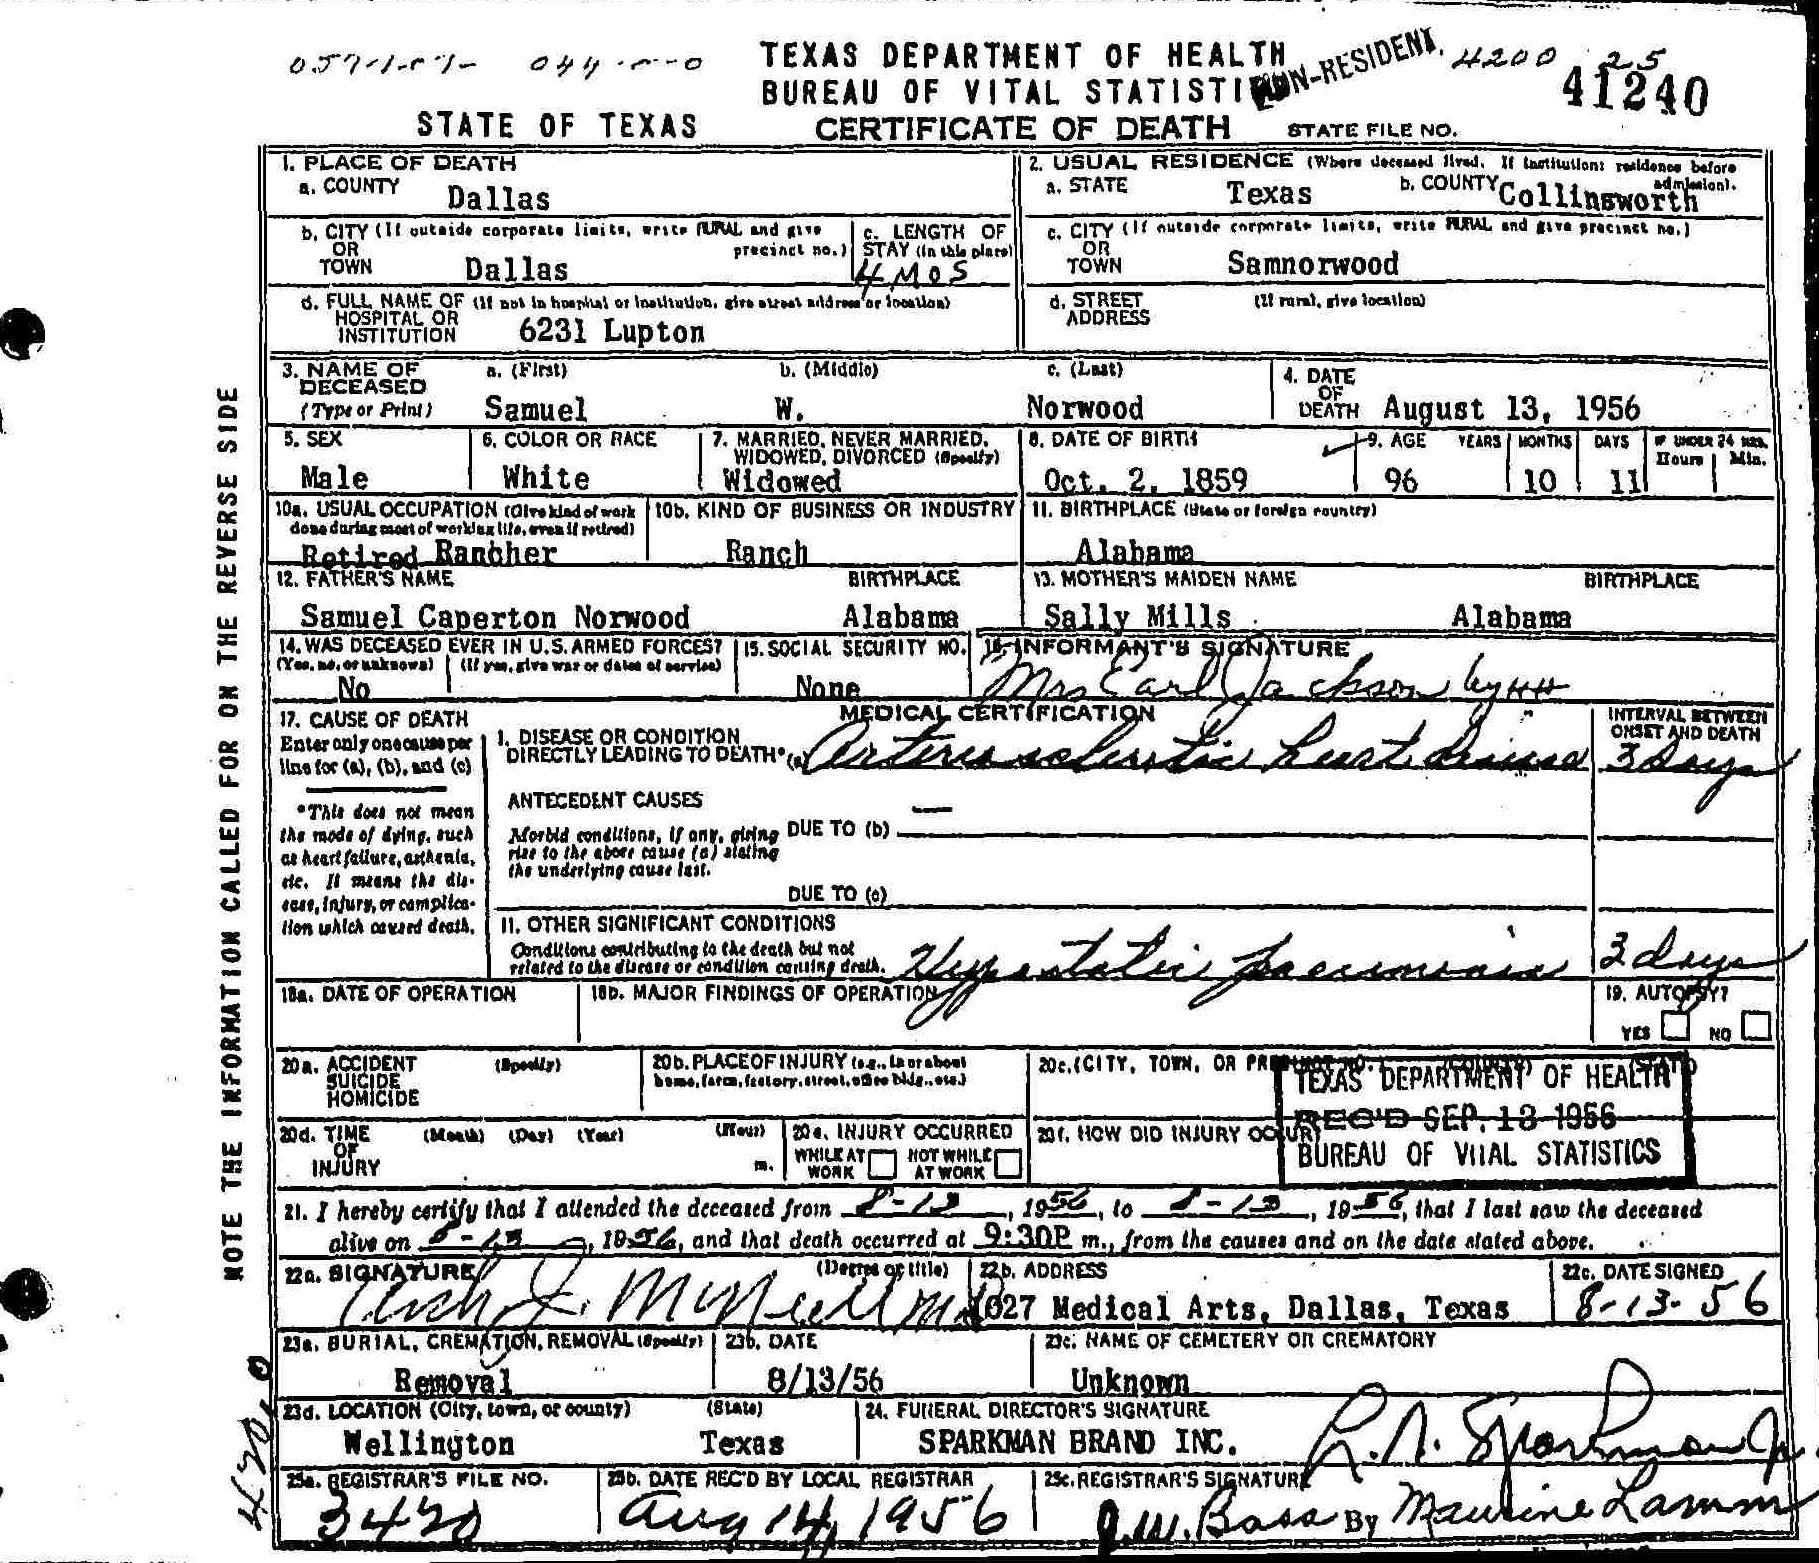 TEXAS DEPARTMENT OF HEALTH
BUREAU OF VITAL STATISTI
NON-RESIDENT.
4200 25
41240
STATE OF TEXAS CERTIFICATE OF DEATH STATE FILE NO.
NOTE THE INFORMATION CALLED FOR ON THE REVERSE SIDE
1. PLACE OF DEATH
a. COUNTY Dallas
2. USUAL RESIDENCE (Where deceased lived. If institution: residence before admission).
a. STATE Texas b. COUNTY Collinsworth
b. CITY (If outside corporate limits, write RURAL and give precinct no.)
OR
TOWN Dallas
c. LENGTH OF
STAY (in this place)
4 MOS
c. CITY (If outside corporate limits, write RURAL and give precinct no.)
OR
TOWN Samnorwood
d. FULL NAME OF (If not in hospital or institution, give street address or location)
HOSPITAL OR
INSTITUTION 6231 Lupton
d. STREET (If rural, give location)
ADDRESS
3. NAME OF a. (First) b. (Middle) c. (Last)
DECEASED
(Type or Print) Samuel W. Norwood
4. DATE
OF
DEATH August 13, 1956
5. SEX
Male
6. COLOR OR RACE
White
7. MARRIED, NEVER MARRIED,
WIDOWED, DIVORCED (Specify)
Widowed
8. DATE OF BIRTH
Oct. 2, 1859
9. AGE YEARS MONTHS DAYS IF UNDER 24 HRS.
Hours Min.
96 10 11
10a. USUAL OCCUPATION (Give kind of work
done during most of working life, even if retired)
Retired Rancher
10b. KIND OF BUSINESS OR INDUSTRY
Ranch
11. BIRTHPLACE (State or foreign country)
Alabama
12. FATHER'S NAME BIRTHPLACE
Samuel Caperton Norwood Alabama
13. MOTHER'S MAIDEN NAME BIRTHPLACE
Sally Mills Alabama
14. WAS DECEASED EVER IN U.S. ARMED FORCES?
(Yes, no, or unknown) (If yes, give war or dates of service)
No
15. SOCIAL SECURITY NO.
None
16. INFORMANT'S SIGNATURE
Mrs Earl Jackson by HH
MEDICAL CERTIFICATION
17. CAUSE OF DEATH
Enter only one cause per
line for (a), (b), and (c)
*This does not mean
the mode of dying, such
as heart failure, asthenia,
etc. It means the dis-
ease, injury, or complica-
tion which caused death.
1. DISEASE OR CONDITION
DIRECTLY LEADING TO DEATH* (a) Arteriosclerotic heart disease
INTERVAL BETWEEN
ONSET AND DEATH
3 days
ANTECEDENT CAUSES
Morbid conditions, if any, giving
rise to the above cause (a) stating
the underlying cause last.
DUE TO (b) —
DUE TO (c)
11. OTHER SIGNIFICANT CONDITIONS
Conditions contributing to the death but not
related to the disease or condition causing death.
Hypostatic pneumonia 3 days
18a. DATE OF OPERATION
18b. MAJOR FINDINGS OF OPERATION
19. AUTOPSY?
YES NO
20a. ACCIDENT (Specify)
SUICIDE
HOMICIDE
20b. PLACE OF INJURY (e.g., in or about
home, farm, factory, street, office bldg., etc.)
20c. (CITY, TOWN, OR PRECINCT NO.) (COUNTY) (STATE)
TEXAS DEPARTMENT OF HEALTH
REC'D SEP. 13 1956
BUREAU OF VITAL STATISTICS
20d. TIME (Month) (Day) (Year) (Hour)
OF
INJURY m.
20e. INJURY OCCURRED
WHILE AT WORK NOT WHILE AT WORK
20f. HOW DID INJURY OCCUR?
21. I hereby certify that I attended the deceased from 8-13, 1956, to 8-13, 1956, that I last saw the deceased
alive on 8-13, 1956, and that death occurred at 9:30P m., from the causes and on the date stated above.
22a. SIGNATURE (Degree or title)
McNeill M.D.
22b. ADDRESS
1027 Medical Arts, Dallas, Texas
22c. DATE SIGNED
8-13-56
23a. BURIAL, CREMATION, REMOVAL (Specify)
Removal
23b. DATE
8/13/56
23c. NAME OF CEMETERY OR CREMATORY
Unknown
23d. LOCATION (City, town, or county) (State)
Wellington Texas
24. FUNERAL DIRECTOR'S SIGNATURE
SPARKMAN BRAND INC. Sparkman Jr
25a. REGISTRAR'S FILE NO.
3420
25b. DATE REC'D BY LOCAL REGISTRAR
Aug 14, 1956
25c. REGISTRAR'S SIGNATURE
J.W. Bass By Maurine Lamm